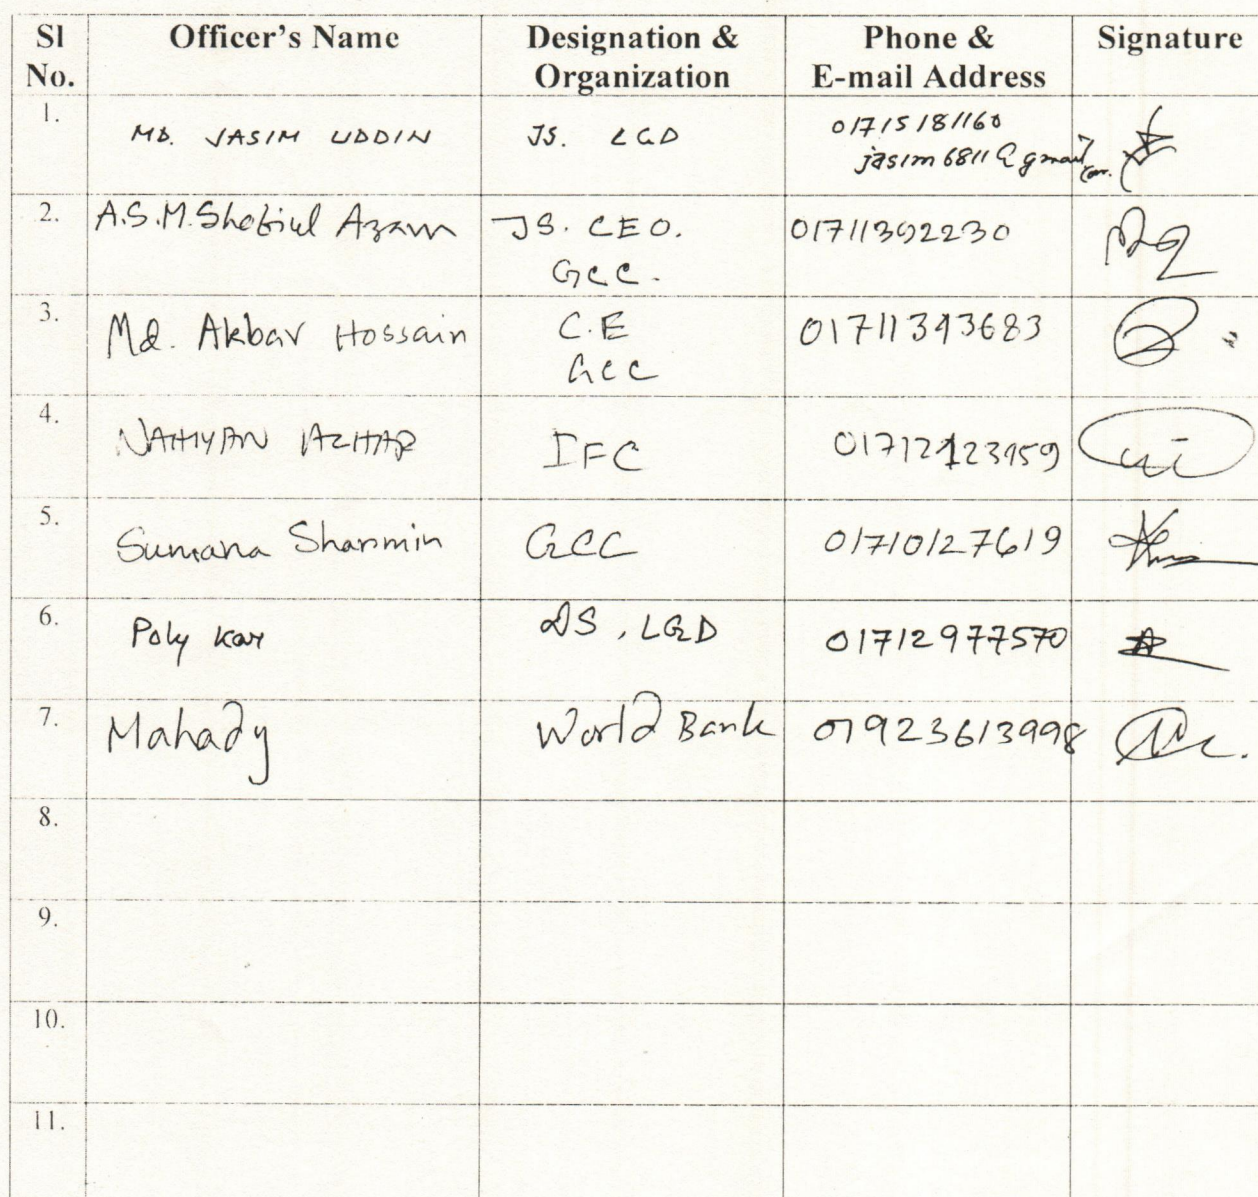 Sl No. Officer's Name Designation & Organization Phone & E-mail Address Signature
1. MD. JASIM UDDIN JS. LGD 01715181160
jasim6811@gmail.com.
2. A.S.M. Shofiul Azam JS. CEO. 01711302230
GCC.
3. Md. Akbar Hossain C.E 01711343683
GCC
4. NAHIYAN AZHAR IFC
5. Sumana Sharmin GCC 01710127619
6. Poly Kar DS, LGD 01712977570
7. Mahady World Bank 01923613998
8.
9.
10.
11.